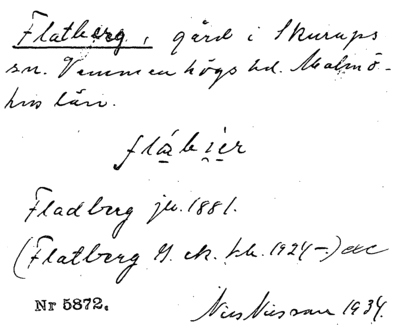 Flatberg, gård i Skurups
sn. Vemmenhögs hd. Malmö-
hus län.
flábier
Fladberg jb. 1881.
(Flatberg G. ek. kb. 1924-)
Nr 5872. Nils Nilsson 1934.